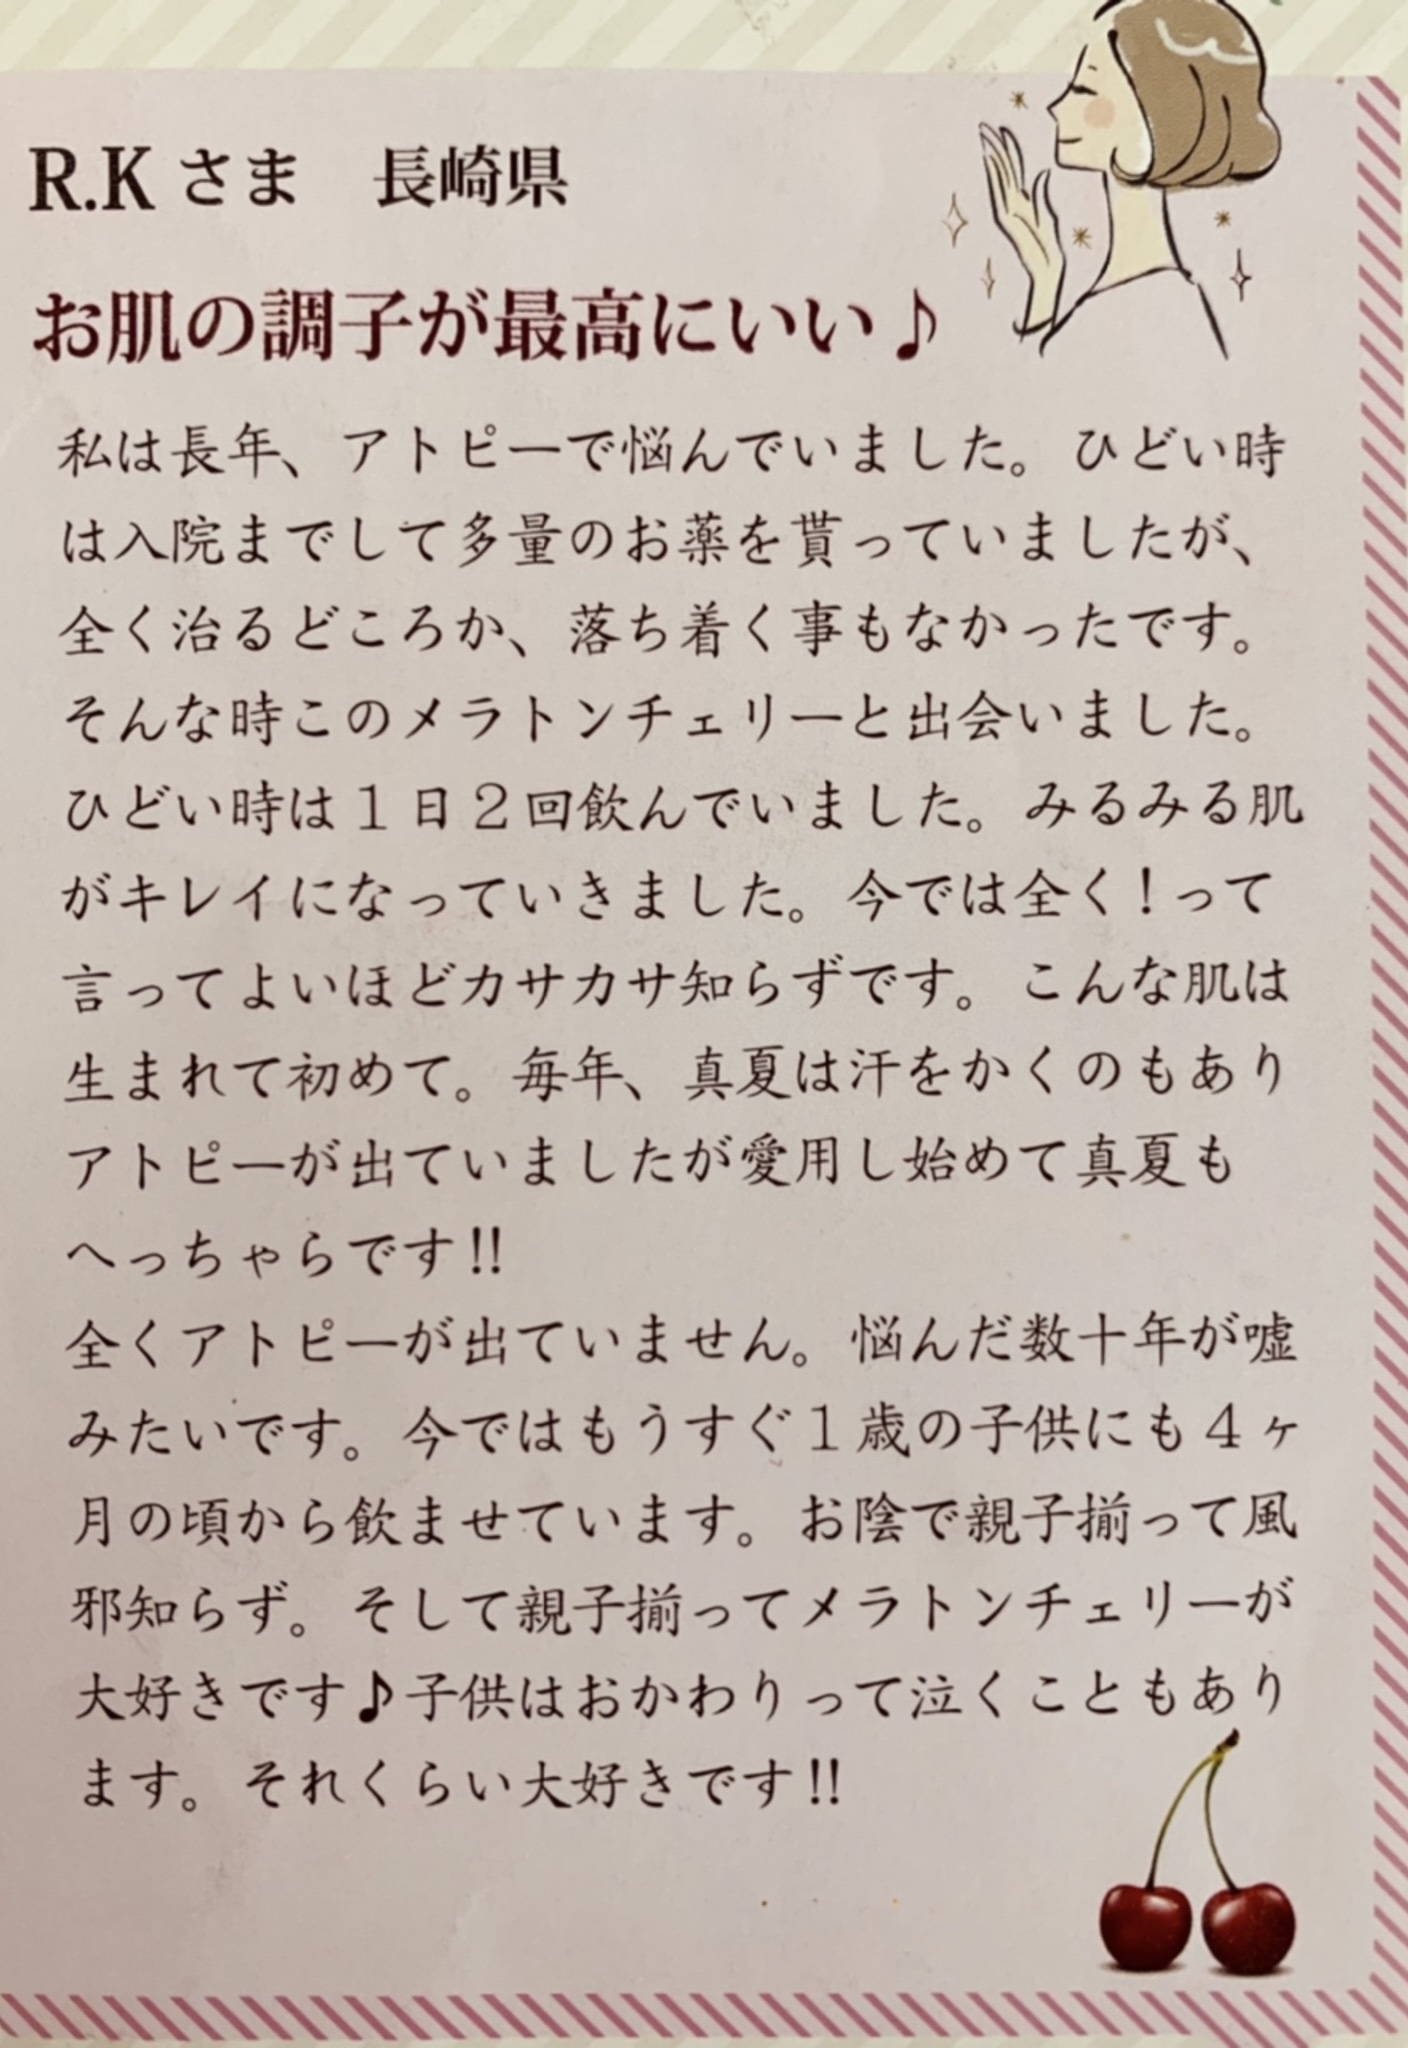 R.K さま　長崎県
お肌の調子が最高にいい♪
私は長年、アトピーで悩んでいました。ひどい時
は入院までして多量のお薬を貰っていましたが、
全く治るどころか、落ち着く事もなかったです。
そんな時このメラトンチェリーと出会いました。
ひどい時は１日２回飲んでいました。みるみる肌
がキレイになっていきました。今では全く！って
言ってよいほどカサカサ知らずです。こんな肌は
生まれて初めて。毎年、真夏は汗をかくのもあり
アトピーが出ていましたが愛用し始めて真夏も
へっちゃらです!!
全くアトピーが出ていません。悩んだ数十年が嘘
みたいです。今ではもうすぐ１歳の子供にも４ヶ
月の頃から飲ませています。お陰で親子揃って風
邪知らず。そして親子揃ってメラトンチェリーが
大好きです♪子供はおかわりって泣くこともあり
ます。それくらい大好きです!!